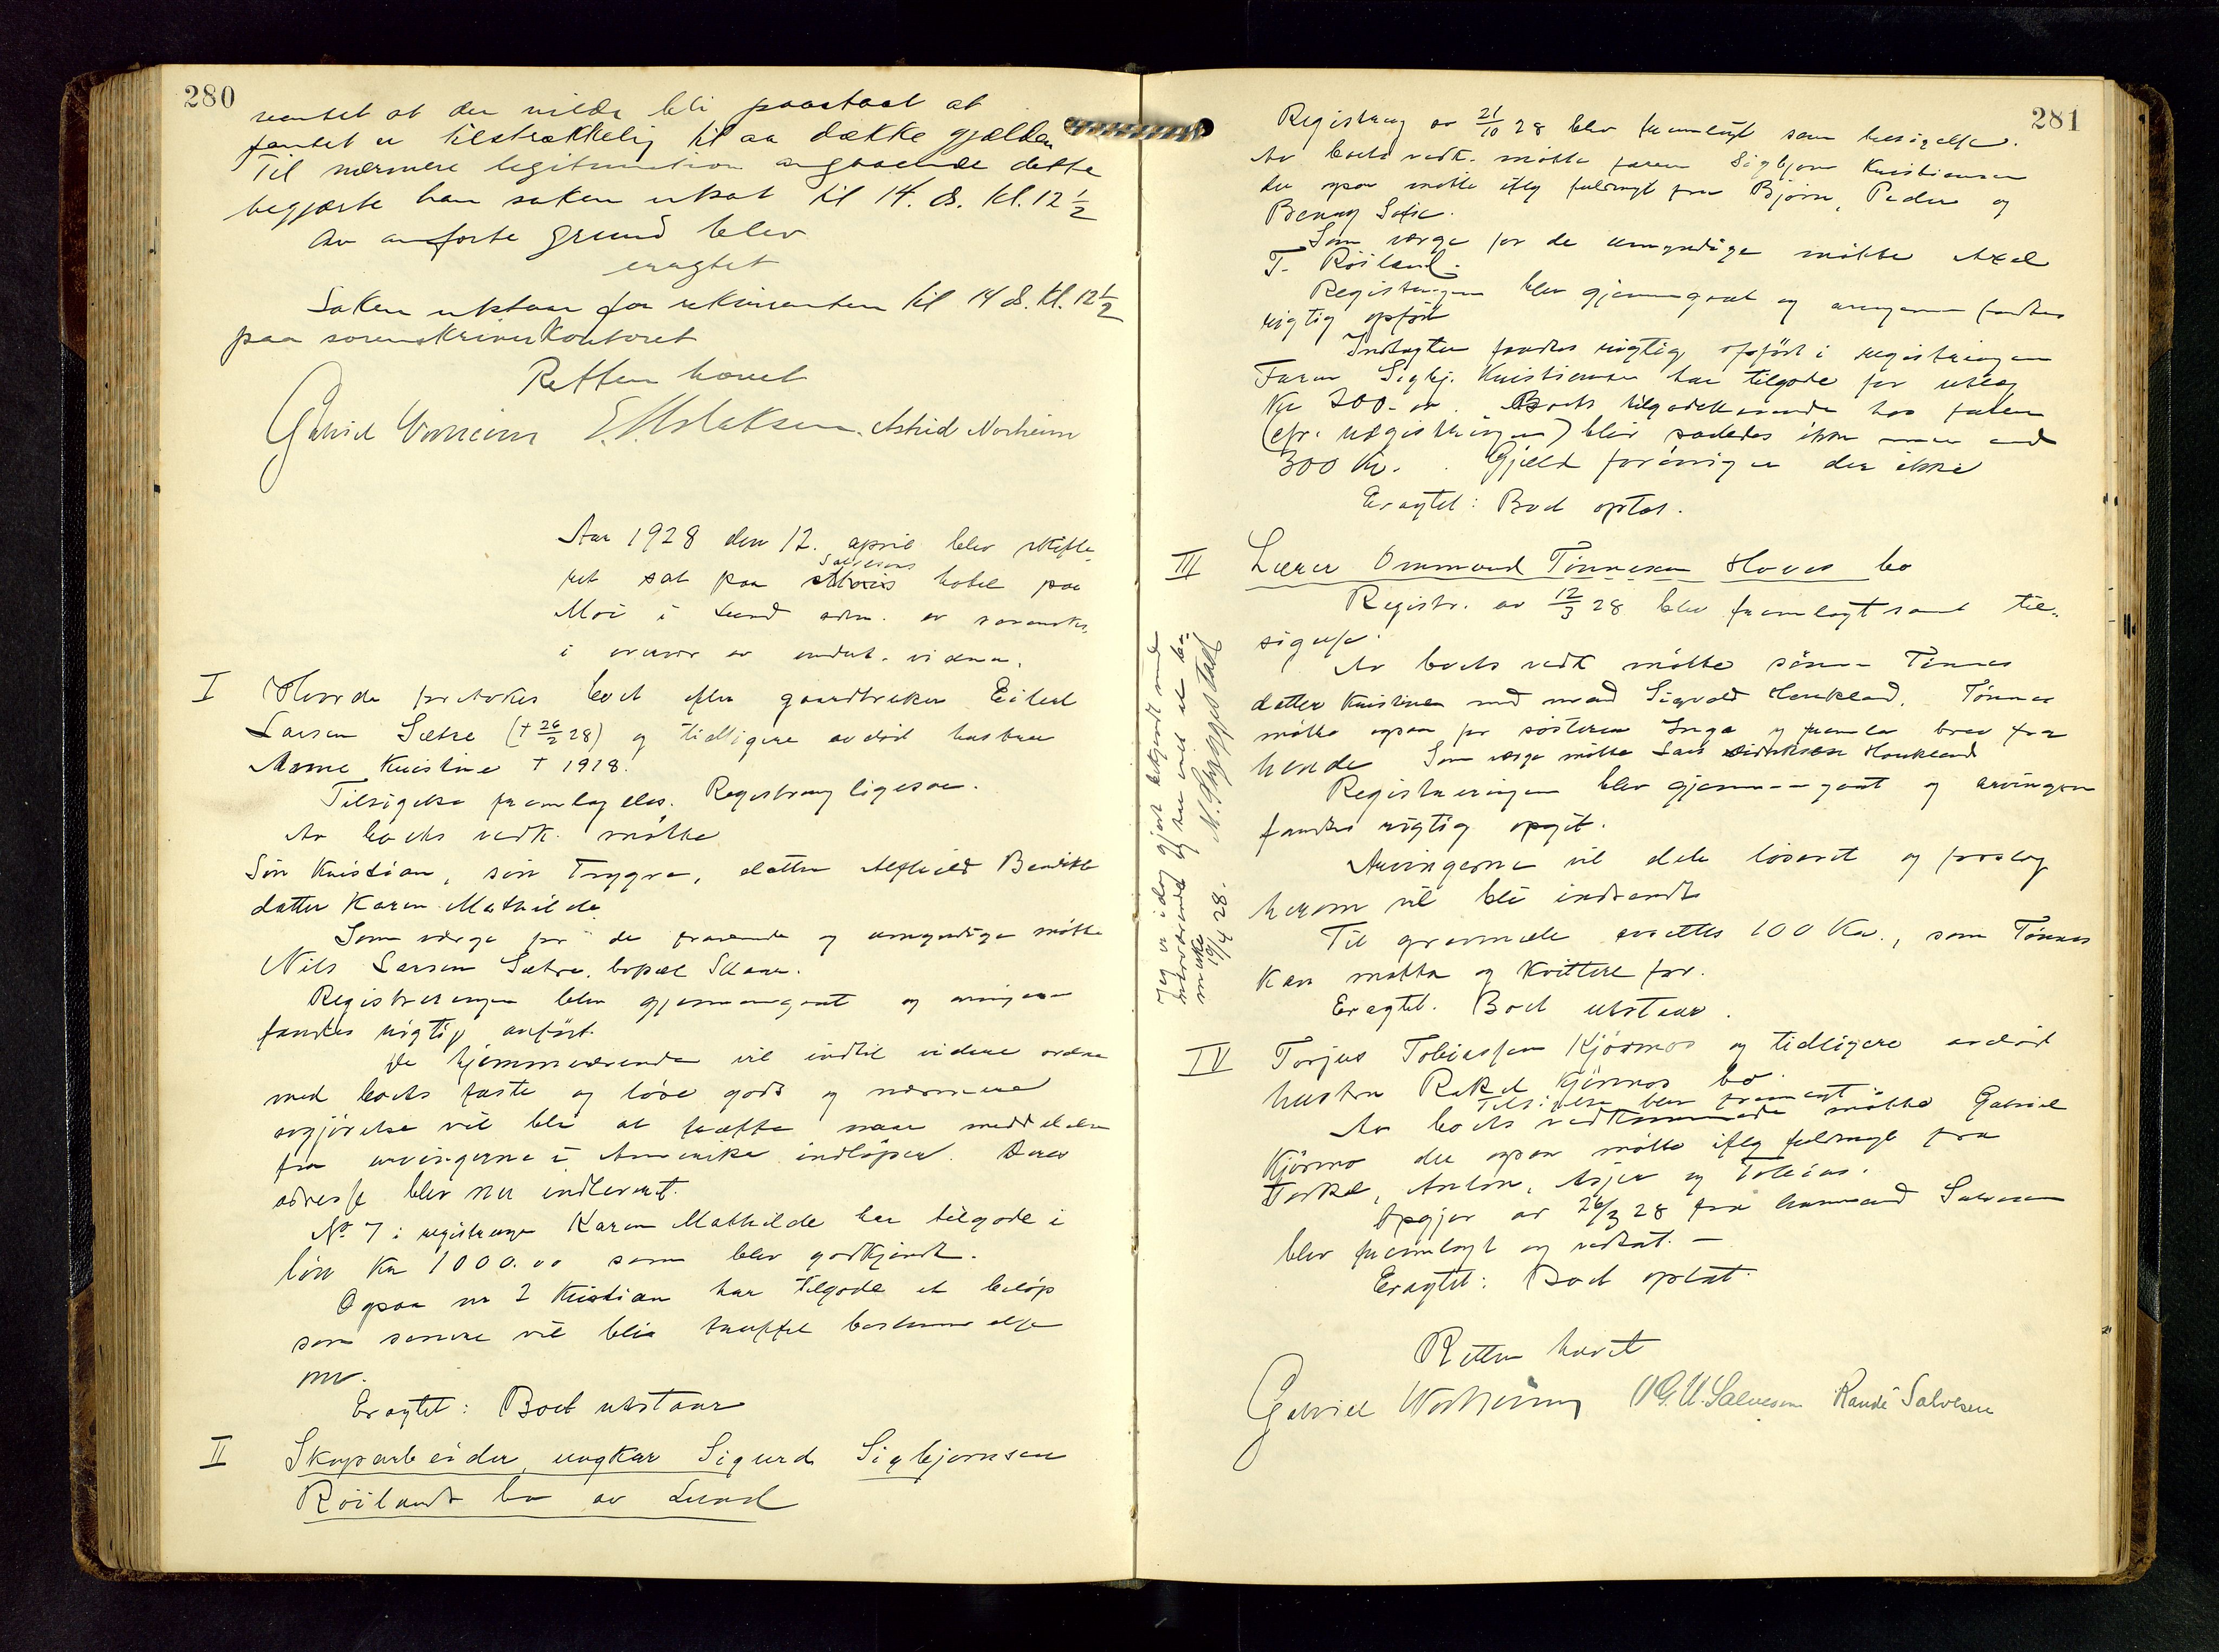 280
ventet at der vilde bli paastaat at
pantet er tilstrækkelig til aa dække gjælden
Til nærmere legitimation angaaende dette
begjærte han saken utsat til 14. ds. kl. 12 1/2
Av anførte grund blev
eragtet
Saken utstaar for rekvirenten til 14 ds. kl. 12 1/2
paa sorenskriverkontoret
Retten hævet
Gabriel Astrid Norheim
Aar 1928 den 12. april blev skifte-
Salvesens
ret sat paa hotel paa
Moi i Lund adm. av sorenskr.
i nærvær av undert. vidner.
I Hvorda foretokes boet efter gaardbruker Eilert
Larsen Sætre († 26/2 28) og tidligere avdød hustru
Anne Kristine † 1918.
Tilsigelse fremlagdes. Registrering ligesaa.
Av boets vedk. møtte
Søn Kristian, søn Trygve, datter Alfhild Bendikte
datter Karen Mathilde
Som værge for de fraværende og umyndige møtte
Nils Larsen Sætre, bopæl Skaar.
Registreringen blev gjennemgaat og arvingerne
fandtes rigtig anført.
De hjemmeværende vil indtil videre ordne
med boets faste og løse gods og nærmere
avgjørelse vil bli at træffe naar meddelelse
fra arvingerne i Amerika indløper. Deres
adresse blev nu indlevert.
No 7 i registreringen Karen Mathilde har tilgode i
løn Kr 1000.00 som blev godkjendt.
Ogsaa nr 2 Kristian har tilgode et beløp
som senere vil blie truffet bestemmelse
om.
Eragtet: Boet utstaar
II Skoparbeider, ungkar Sigurd Sigbjørnsen
Røilands bo av Lund
281
Registrering av 21/10 28 blev fremlagt som tilsigelse.
Av boets vedk. møtte faren Sigbjørn Kristiansen
der ogsaa møtte iflg fuldmagt fra Bjørn, Peder og
Benny Sofie.
Som værge for de umyndige møtte Axel
T. Røiland.
Registreringen blev gjennemgaat og arvingerne fandtes
rigtig opført
Indtægten fandtes rigtig opført i registreringen
Faren Sigbj. Kristiansen har tilgode for utlæg
Kr 200.00. Boets tilgodehavende hos faren
(cfr. registreringen) blir saaledes ikke mere end
300 Kr. Gjæld forøvrig er der ikke
Eragtet: Boet optat.
III Lærer Ommund Tønnesen Hoves bo
Registr. av 12/3 28 blev fremlagt samt til-
sigelse.
Av boets vedk møtte sønnen Tønnes
datter Kristine med mand Sigvald Haukland. Tønnes
møtte ogsaa for søsteren Inga og fremla brev fra
hende Som værge møtte Lars Haukland
Registreringen blev gjennemgaat og arvingerne
fandtes rigtig opgit.
Arvingerne vil dele løsøret og forslag
herom vil bli indsendt
Til gravmæle avsættes 100 Kr., som Tønnes
kan motta og kvittere for.
Eragtet. Boet utstaar.
Jeg er idag gjort bekjendt med
nærværende og har intet at be-
merke
19/4 28. N. Skyggestad
IV Torjus Tobiassen Kjørmos og tidligere avdød
hustru Rakel Kjørmos bo
Tilsigelse blev fremlagt
Av boets vedkommende møtte Gabriel
Kjørmo der ogsaa møtte iflg fuldmagt fra
Torkel, Anton, Asjer og Tobias.
Opgjør av 26/3 28 fra lensmand Salvesen
blev fremlagt og vedtat. -
Eragtet: Boet optat.
Retten hævet
Gabriel O.G.U. Salvesen Randi Salvesen